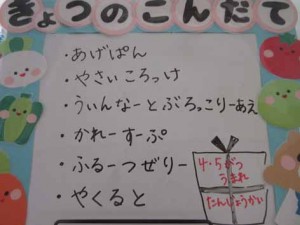 きょうのこんだて
・あげぱん
・やさいころっけ
・ういんなーとぶろっこりーあえ
・かれーすーぷ
・ふるーつぜりー
・やくると
4・5がつ
うまれ
たんじょうかい